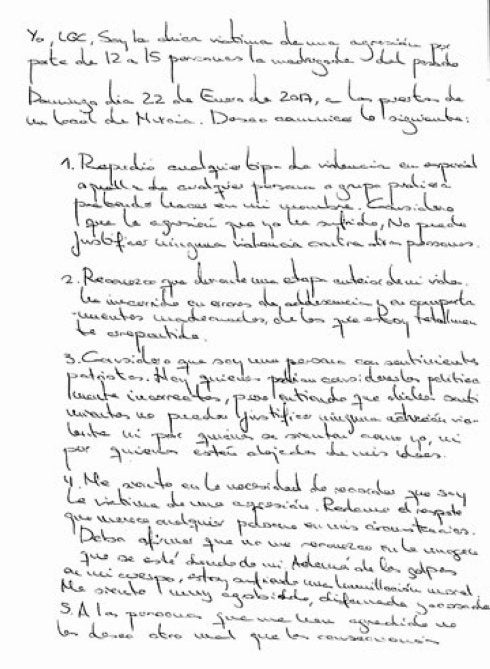 Yo, LGC, Soy la chica victima de una agresión por
parte de 12 a 15 personas la madrugada del pasado
Domingo dia 22 de Enero de 2017, a las puertas de
un local de Murcia. Deseo comunicar lo siguiente:
1. Repudio cualquier tipo de violencia en especial
aquella de cualquier persona o grupo
pretenda hacer en mi nombre. Considero
que la agresión que yo he sufrido, No puede
Justificar ninguna violencia contra otras personas.
2. Reconozco que durante una etapa anterior de mi vida
he incurrido en errores de adolescencia y en comporta
-mientos inadecuados, de los que estoy totalmen
te arrepentida.
3. Considero que soy una persona con sentimientos
patriotas. Hay quienes podrian considerarlos politica
mente incorrectos, pero entiendo que dichos senti
mientos no pueden justificar ninguna actuación vio-
lenta ni por quienes se sientan como yo, ni
por quienes estén alejados de mis ideas.
4. Me siento en la necesidad de recordar que soy
la victima de una agresión. Reclamo el respeto
que merece cualquier persona en mis circunstancias.
Debo afirmar que no me reconozco en la imagen
que se esté dando de mi. Además de los golpes
en mi cuerpo, estoy sufriendo una humillación moral.
Me siento muy agobiada, difamada y acosada
5. A las personas que me han agredido no
les deseo otro mal que las consecuencias